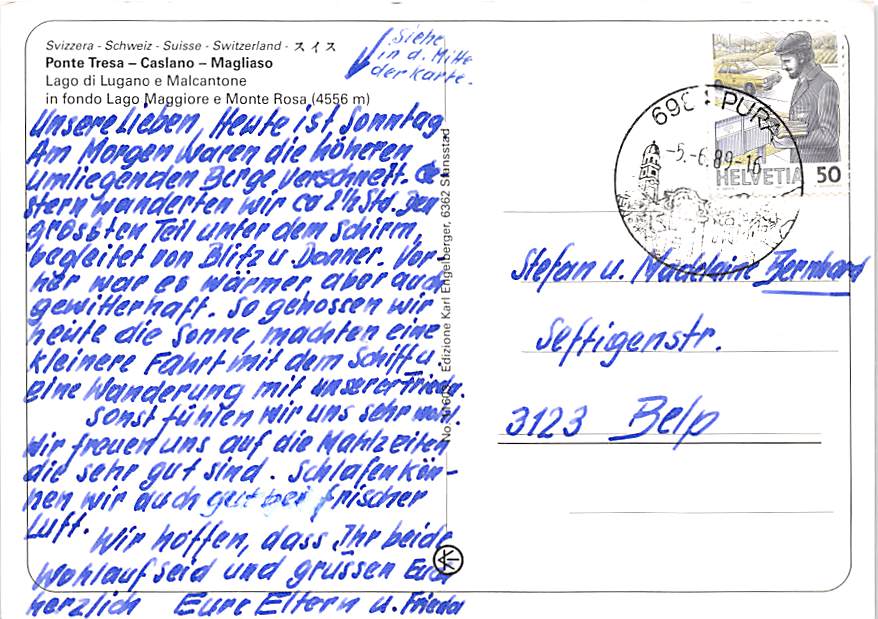 Svizzera - Schweiz - Suisse - Switzerland - スイス
Ponte Tresa – Caslano – Magliaso
Lago di Lugano e Malcantone
in fondo Lago Maggiore e Monte Rosa (4556 m)
Siehe
in d. Mitte
der Karte.
Unsere Lieben, Heute ist Sonntag
Am Morgen waren die höheren
umliegenden Berge verschneit. Ge-
stern wanderten wir ca 2½ Std. Den
grössten Teil unter dem Schirm,
begleitet von Blitz u. Donner. Vor-
her war es wärmer aber auch
gewitterhaft. So genossen wir
heute die Sonne, machten eine
kleinere Fahrt mit dem Schiff u.
eine Wanderung mit unserer Frieda.
Sonst fühlen wir uns sehr wohl.
Wir freuen uns auf die Mahlzeiten
die sehr gut sind. Schlafen kön-
nen wir auch gut bei frischer
Luft.
Wir hoffen, dass Ihr beide
wohlauf seid und grüssen Euch
herzlich Eure Eltern u. Frieda
Edizione Karl Engelberger, 6362 Stansstad
PURA
-5.-6.89-16
HELVETIA 50
Stefan u. Madeleine Bernhard
Seftigenstr.
3123 Belp